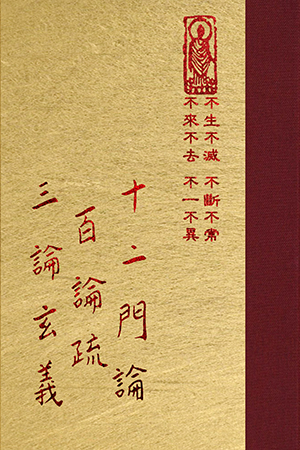 不生不滅 不斷不常
不來不去 不一不異
十二門論
百論疏
三論玄義